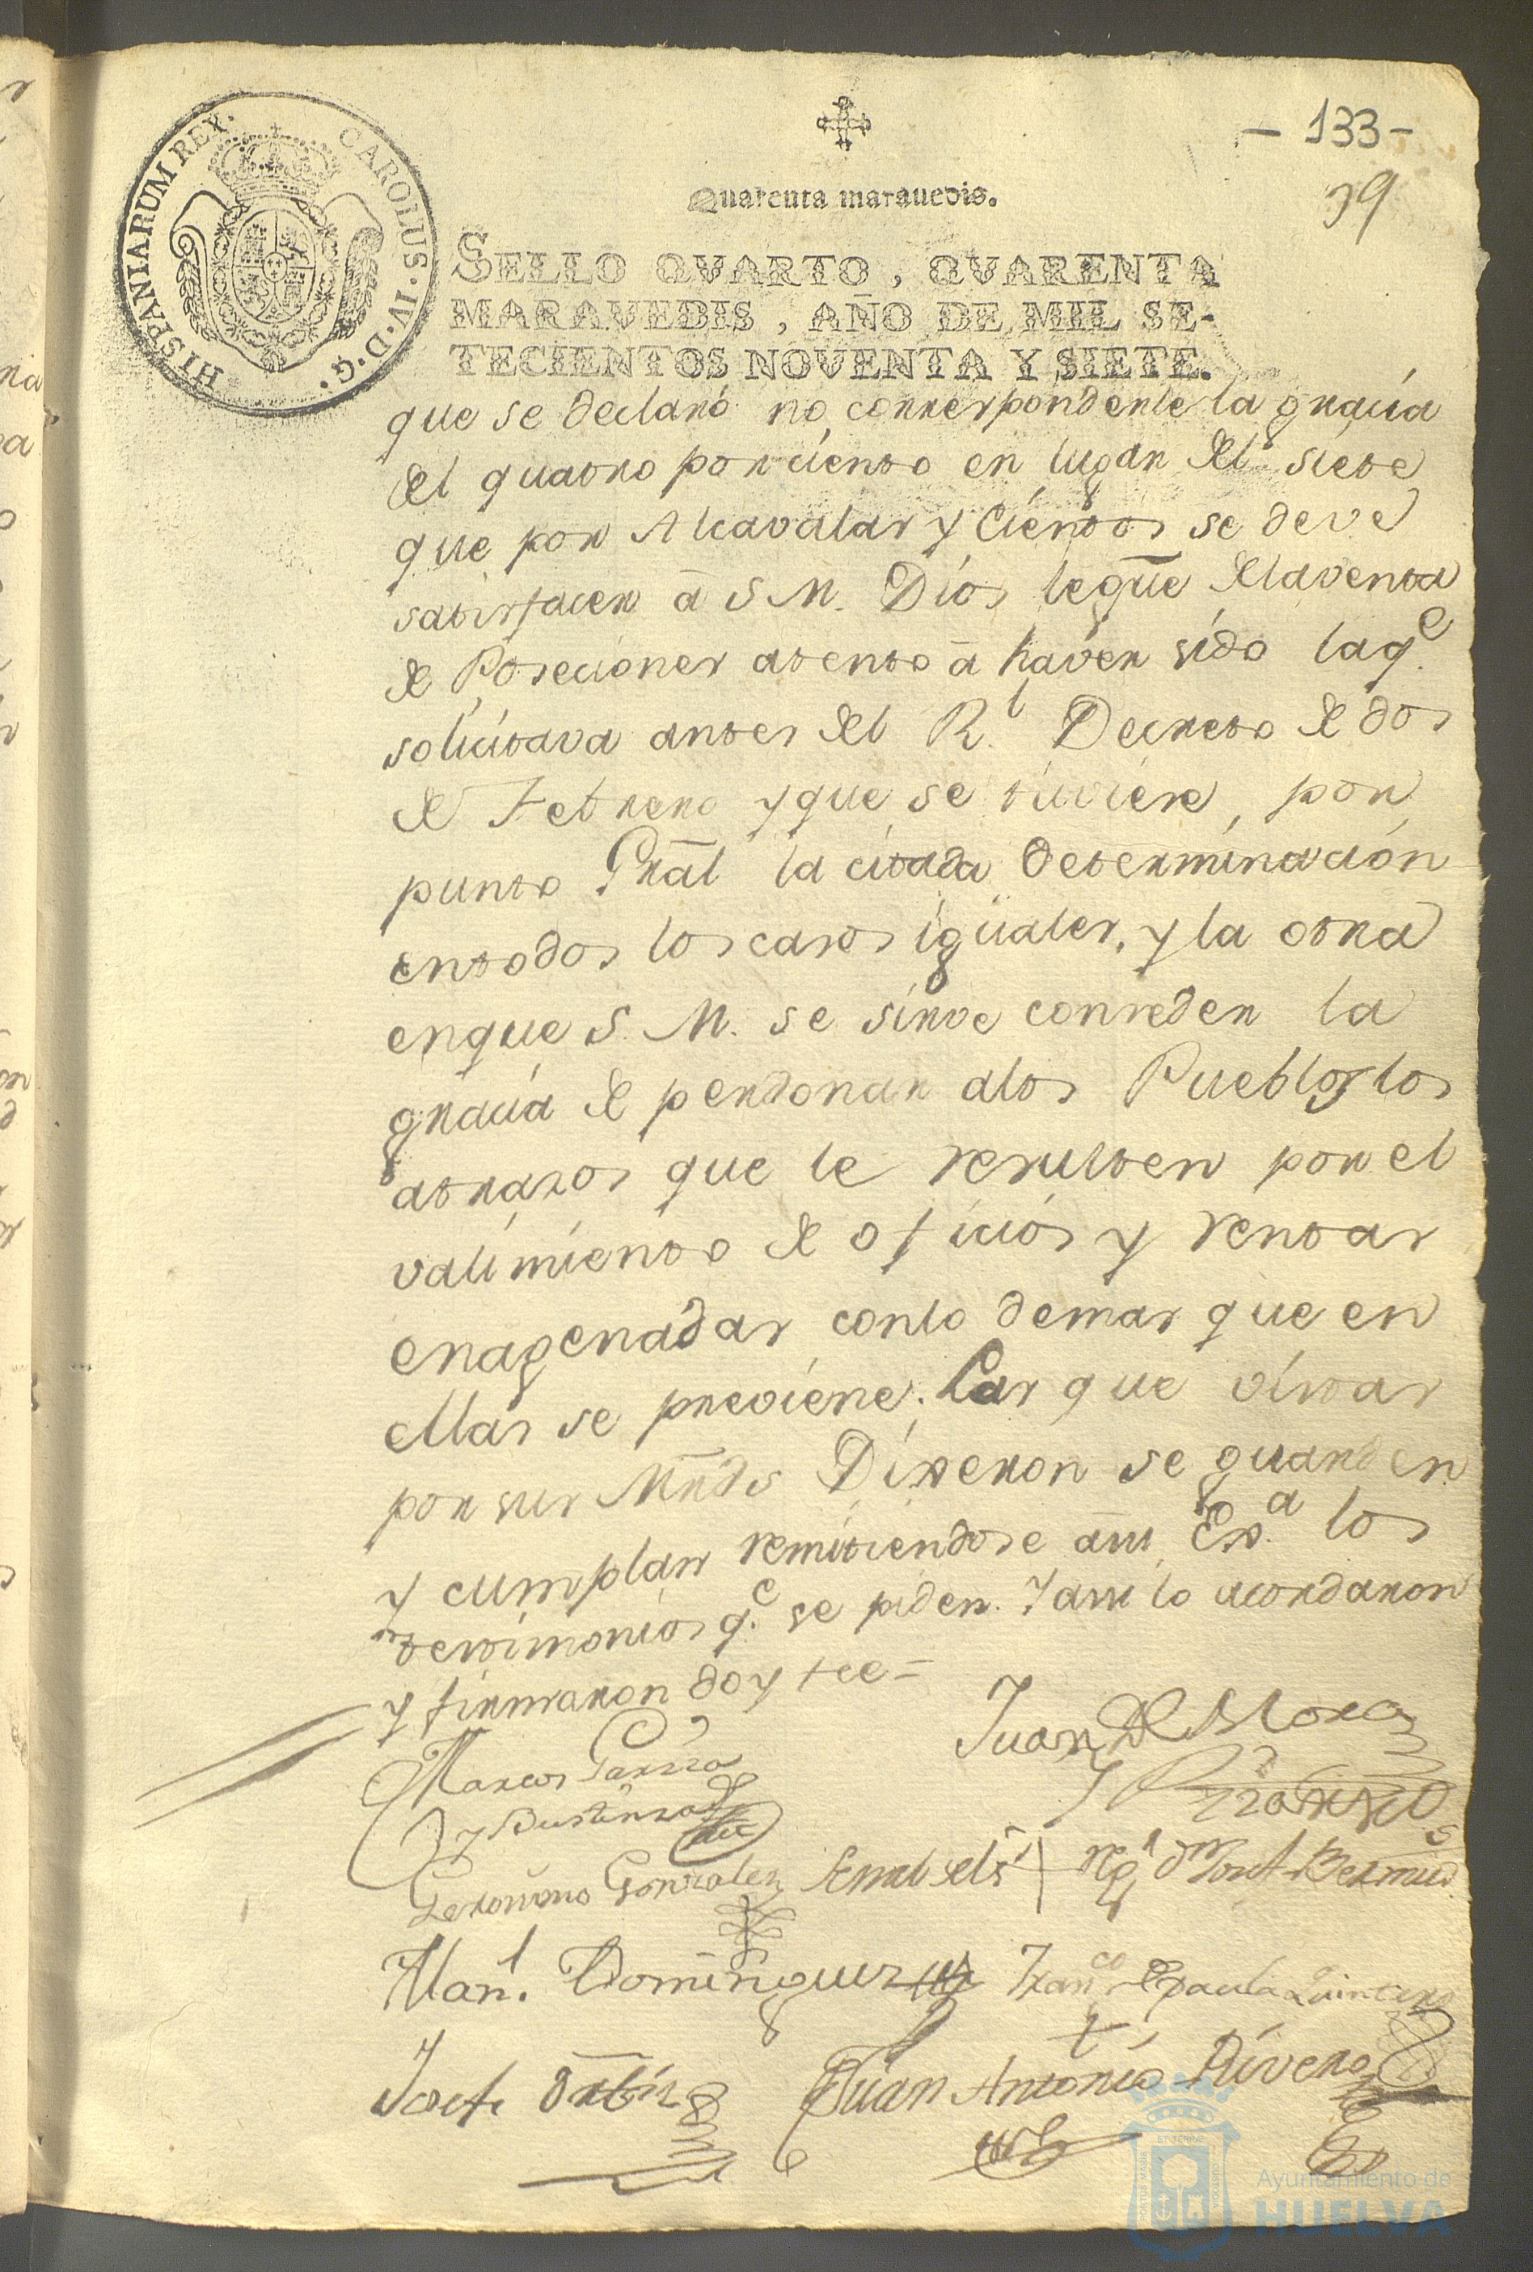 HISPANIARUM REX. CAROLUS·IV·D·G·
- 133 -
39
Quarenta marauedis.
SELLO QVARTO, QVARENTA
MARAVEDIS, AÑO DE MIL SE-
TECIENTOS NOVENTA Y SIETE.
que se declaró no correspondenle la gracia
del quatro por ciento en lugar del siete
que por Alcavalas y Cientos se deve
satisfacer a S M. Dios legue. dela venta
de Poseciones atento a haver sido la qe.
solicitava antes del Rl. Decreto de dos
de Febrero y que se tuviere, por
punto Gral la citada determinacion
entodos los casos iguales, y la otra
enque S. M. se sirve conceder la
gracia de perdonar alos Pueblos los
atrazos que le resulten por el
valimiento de oficios y rentas
enagenadas conlo demas que en
ellas se previene. Las que vistas
por sus Mrds Dixeron se guarden
y cumplan remitiendose a su Exa. los
testimonios qe. se piden. Y assi lo acordaron
y firmaron doy fee=
Juan de Mora
Marcos Garzia
y Bustinza
y
Geronimo Gonzalez Señal del Sr Rexr dn Josef Bermud
Manl. Dominguez Franco de paula Quintero
Josef Ortiz Juan Antonio Rivero
Ayuntamiento de
HUELVA